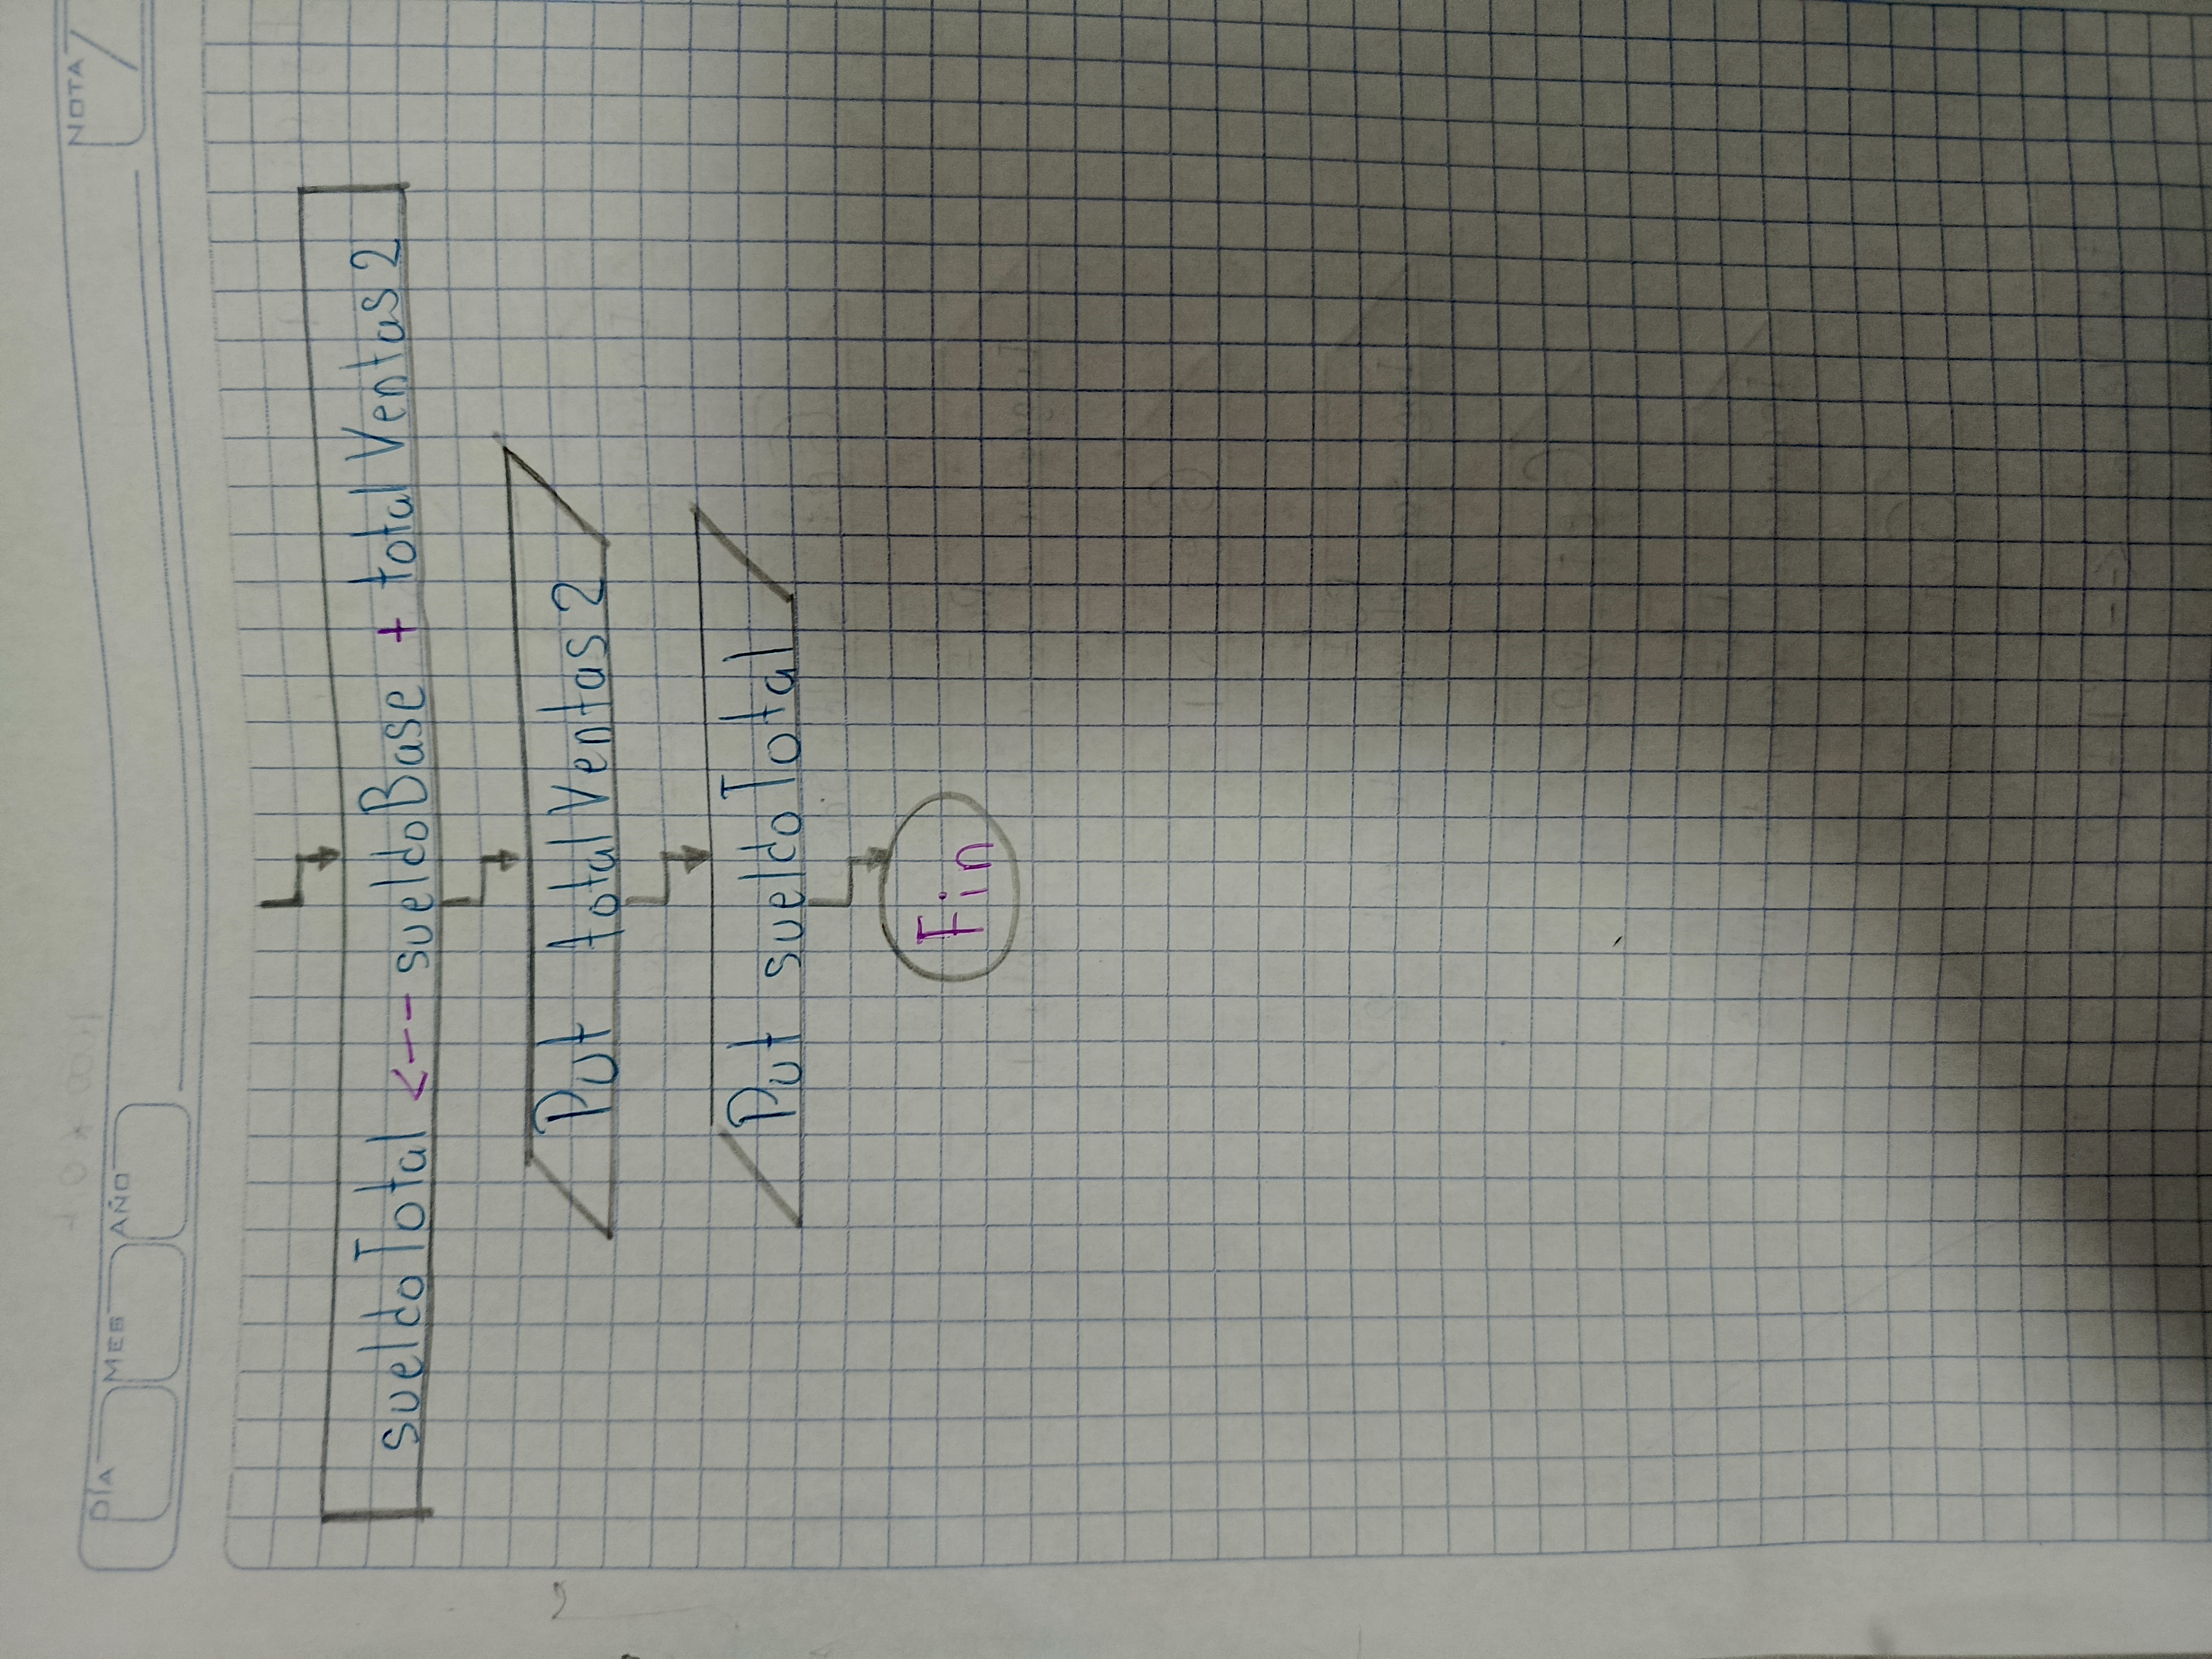 DÍA MES AÑO NOTA
sueldoTotal <-- sueldoBase + totalVentas2
Put totalVentas2
Put sueldoTotal
Fin